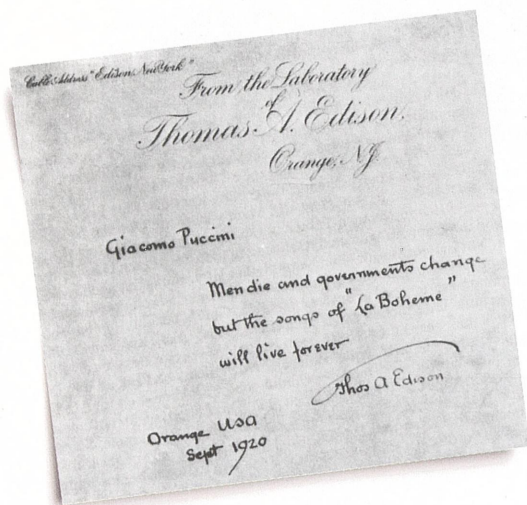 Cable Address "Edison New York"
From the Laboratory
of
Thomas A. Edison.
Orange, N.J.
Giacomo Puccini
Men die and governments change
but the songs of "La Boheme"
will live forever
Thos A Edison
Orange USA
Sept 1920